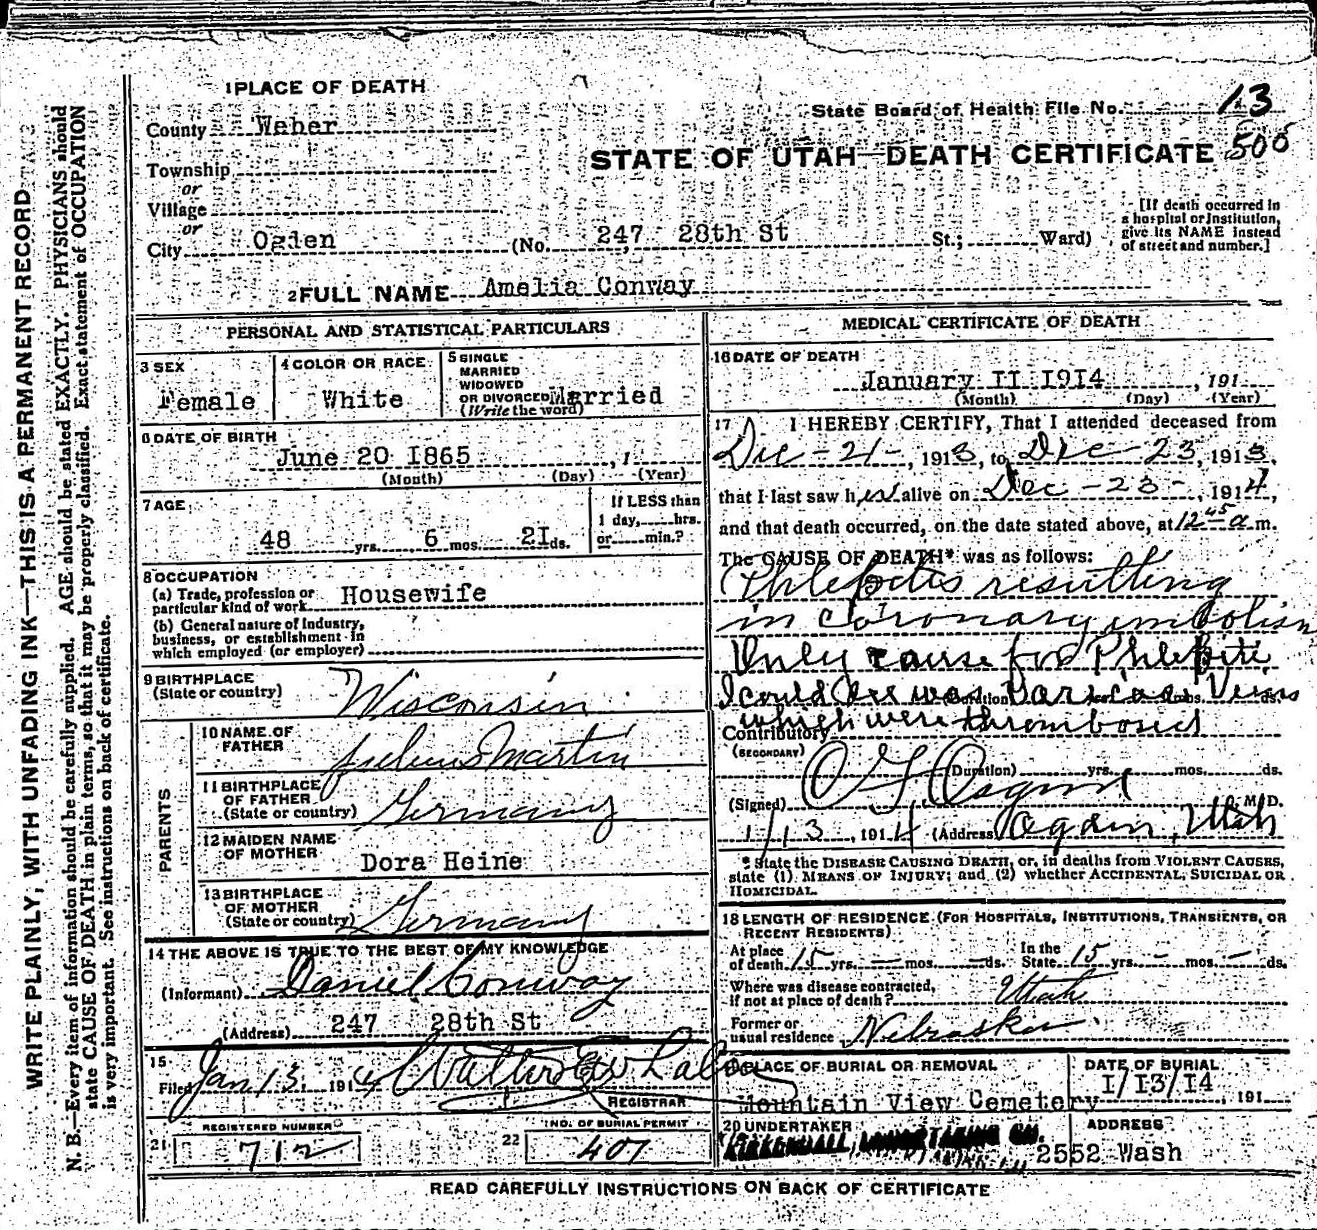 1 PLACE OF DEATH
State Board of Health File No. 13
County Weber
STATE OF UTAH—DEATH CERTIFICATE 506
Township
or
Village
or
City Ogden (No. 247 28th St St.; Ward)
[If death occurred in
a hospital or Institution,
give its NAME instead
of street and number.]
2 FULL NAME Amelia Conway
PERSONAL AND STATISTICAL PARTICULARS
3 SEX
Female
4 COLOR OR RACE
White
5 SINGLE
MARRIED
WIDOWED
OR DIVORCED Married
(Write the word)
6 DATE OF BIRTH
June 20 I865 , 1
(Month) (Day) (Year)
7 AGE
48 yrs. 6 mos. 2I ds.
If LESS than
1 day, hrs.
or min.?
8 OCCUPATION
(a) Trade, profession or
particular kind of work Housewife
(b) General nature of Industry,
business, or establishment in
which employed (or employer)
9 BIRTHPLACE
(State or country) Wisconsin
PARENTS
10 NAME OF
FATHER Julius Martin
11 BIRTHPLACE
OF FATHER
(State or country) Germany
12 MAIDEN NAME
OF MOTHER Dora Heine
13 BIRTHPLACE
OF MOTHER
(State or country) Germany
14 THE ABOVE IS TRUE TO THE BEST OF MY KNOWLEDGE
(Informant) Daniel Conway
(Address) 247 28th St
15
Filed Jan 13 1914 Walter
REGISTRAR
21 REGISTERED NUMBER
712
22 NO. OF BURIAL PERMIT
407
MEDICAL CERTIFICATE OF DEATH
16 DATE OF DEATH
January II I9I4 , 191
(Month) (Day) (Year)
17 I HEREBY CERTIFY, That I attended deceased from
Dec - 21 - , 1913, to Dec - 23, 1913,
that I last saw her alive on Dec - 23 - , 1914,
and that death occurred, on the date stated above, at 12 45 a m.
The CAUSE OF DEATH* was as follows:
Phlebitis resulting
in coronary imbolism
Only cause for Phlebitis
I could see was Varicose Veins
(Duration) yrs. mos. ds.
which were thrombosed
Contributory
(SECONDARY)
(Duration) yrs. mos. ds.
(Signed) O M. D.
1/13, 1914 (Address) Ogden, Utah
* State the DISEASE CAUSING DEATH, or, in deaths from VIOLENT CAUSES,
state (1) MEANS OF INJURY; and (2) whether ACCIDENTAL, SUICIDAL OR
HOMICIDAL.
18 LENGTH OF RESIDENCE (FOR HOSPITALS, INSTITUTIONS, TRANSIENTS, OR
RECENT RESIDENTS)
At place
of death 15 yrs. — mos. — ds.
In the
State 15 yrs. — mos. — ds.
Where was disease contracted,
if not at place of death? Utah
Former or
usual residence Nebraska.
19 PLACE OF BURIAL OR REMOVAL
Mountain View Cemetery
DATE OF BURIAL
I/I3/I4 , 191
20 UNDERTAKER
KIRKENDALL UNDERTAKING CO.
ADDRESS
2552 Wash
READ CAREFULLY INSTRUCTIONS ON BACK OF CERTIFICATE
WRITE PLAINLY, WITH UNFADING INK—THIS IS A PERMANENT RECORD
N. B.—Every item of information should be carefully supplied. AGE should be stated EXACTLY. PHYSICIANS should
state CAUSE OF DEATH in plain terms, so that it may be properly classified. Exact statement of OCCUPATION
is very important. See instructions on back of certificate.